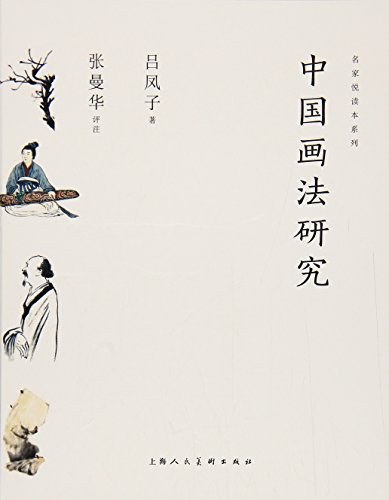 名家悦读本系列
中国画法研究
吕凤子 著
张曼华 评注
上海人民美术出版社